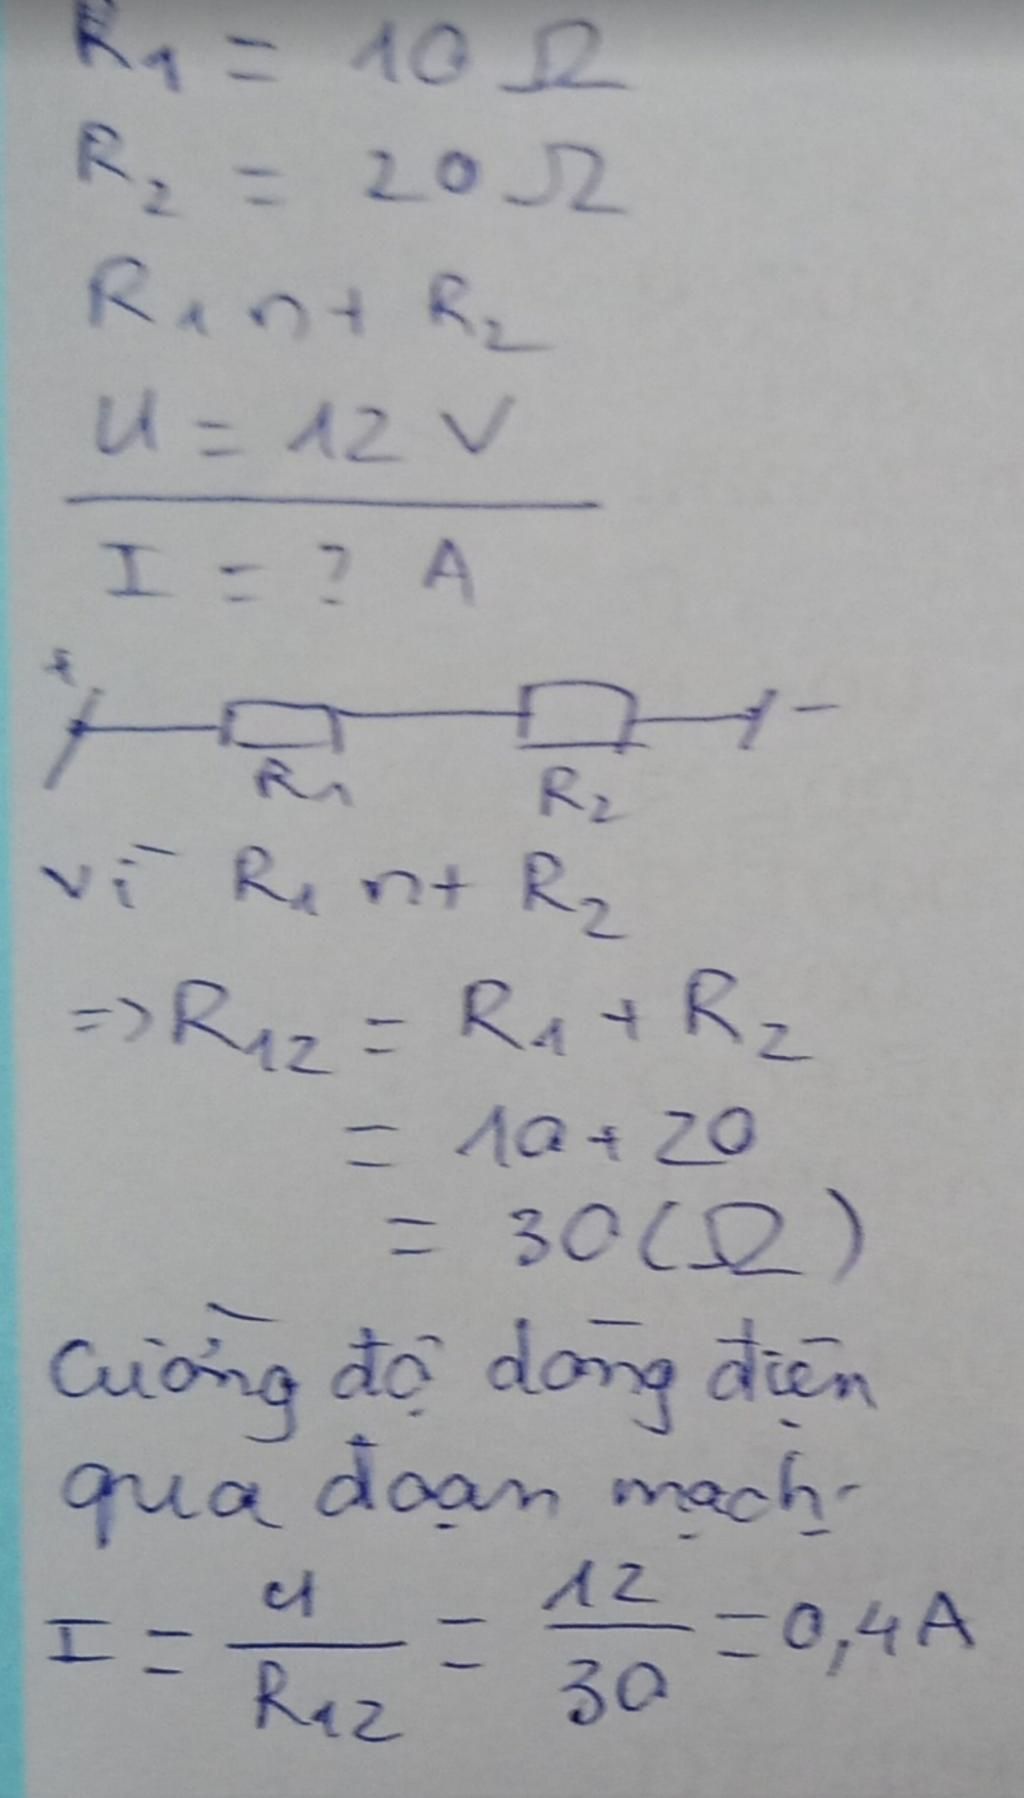 R₁ = 10 Ω
R₂ = 20 Ω
R₁ nt R₂
U = 12 V
I = ? A
+ -
R₁ R₂
vì R₁ nt R₂
=> R₁₂ = R₁ + R₂
= 10 + 20
= 30 (Ω)
Cường độ dòng điện
qua đoạn mạch
I = U/R₁₂ = 12/30 = 0,4 A